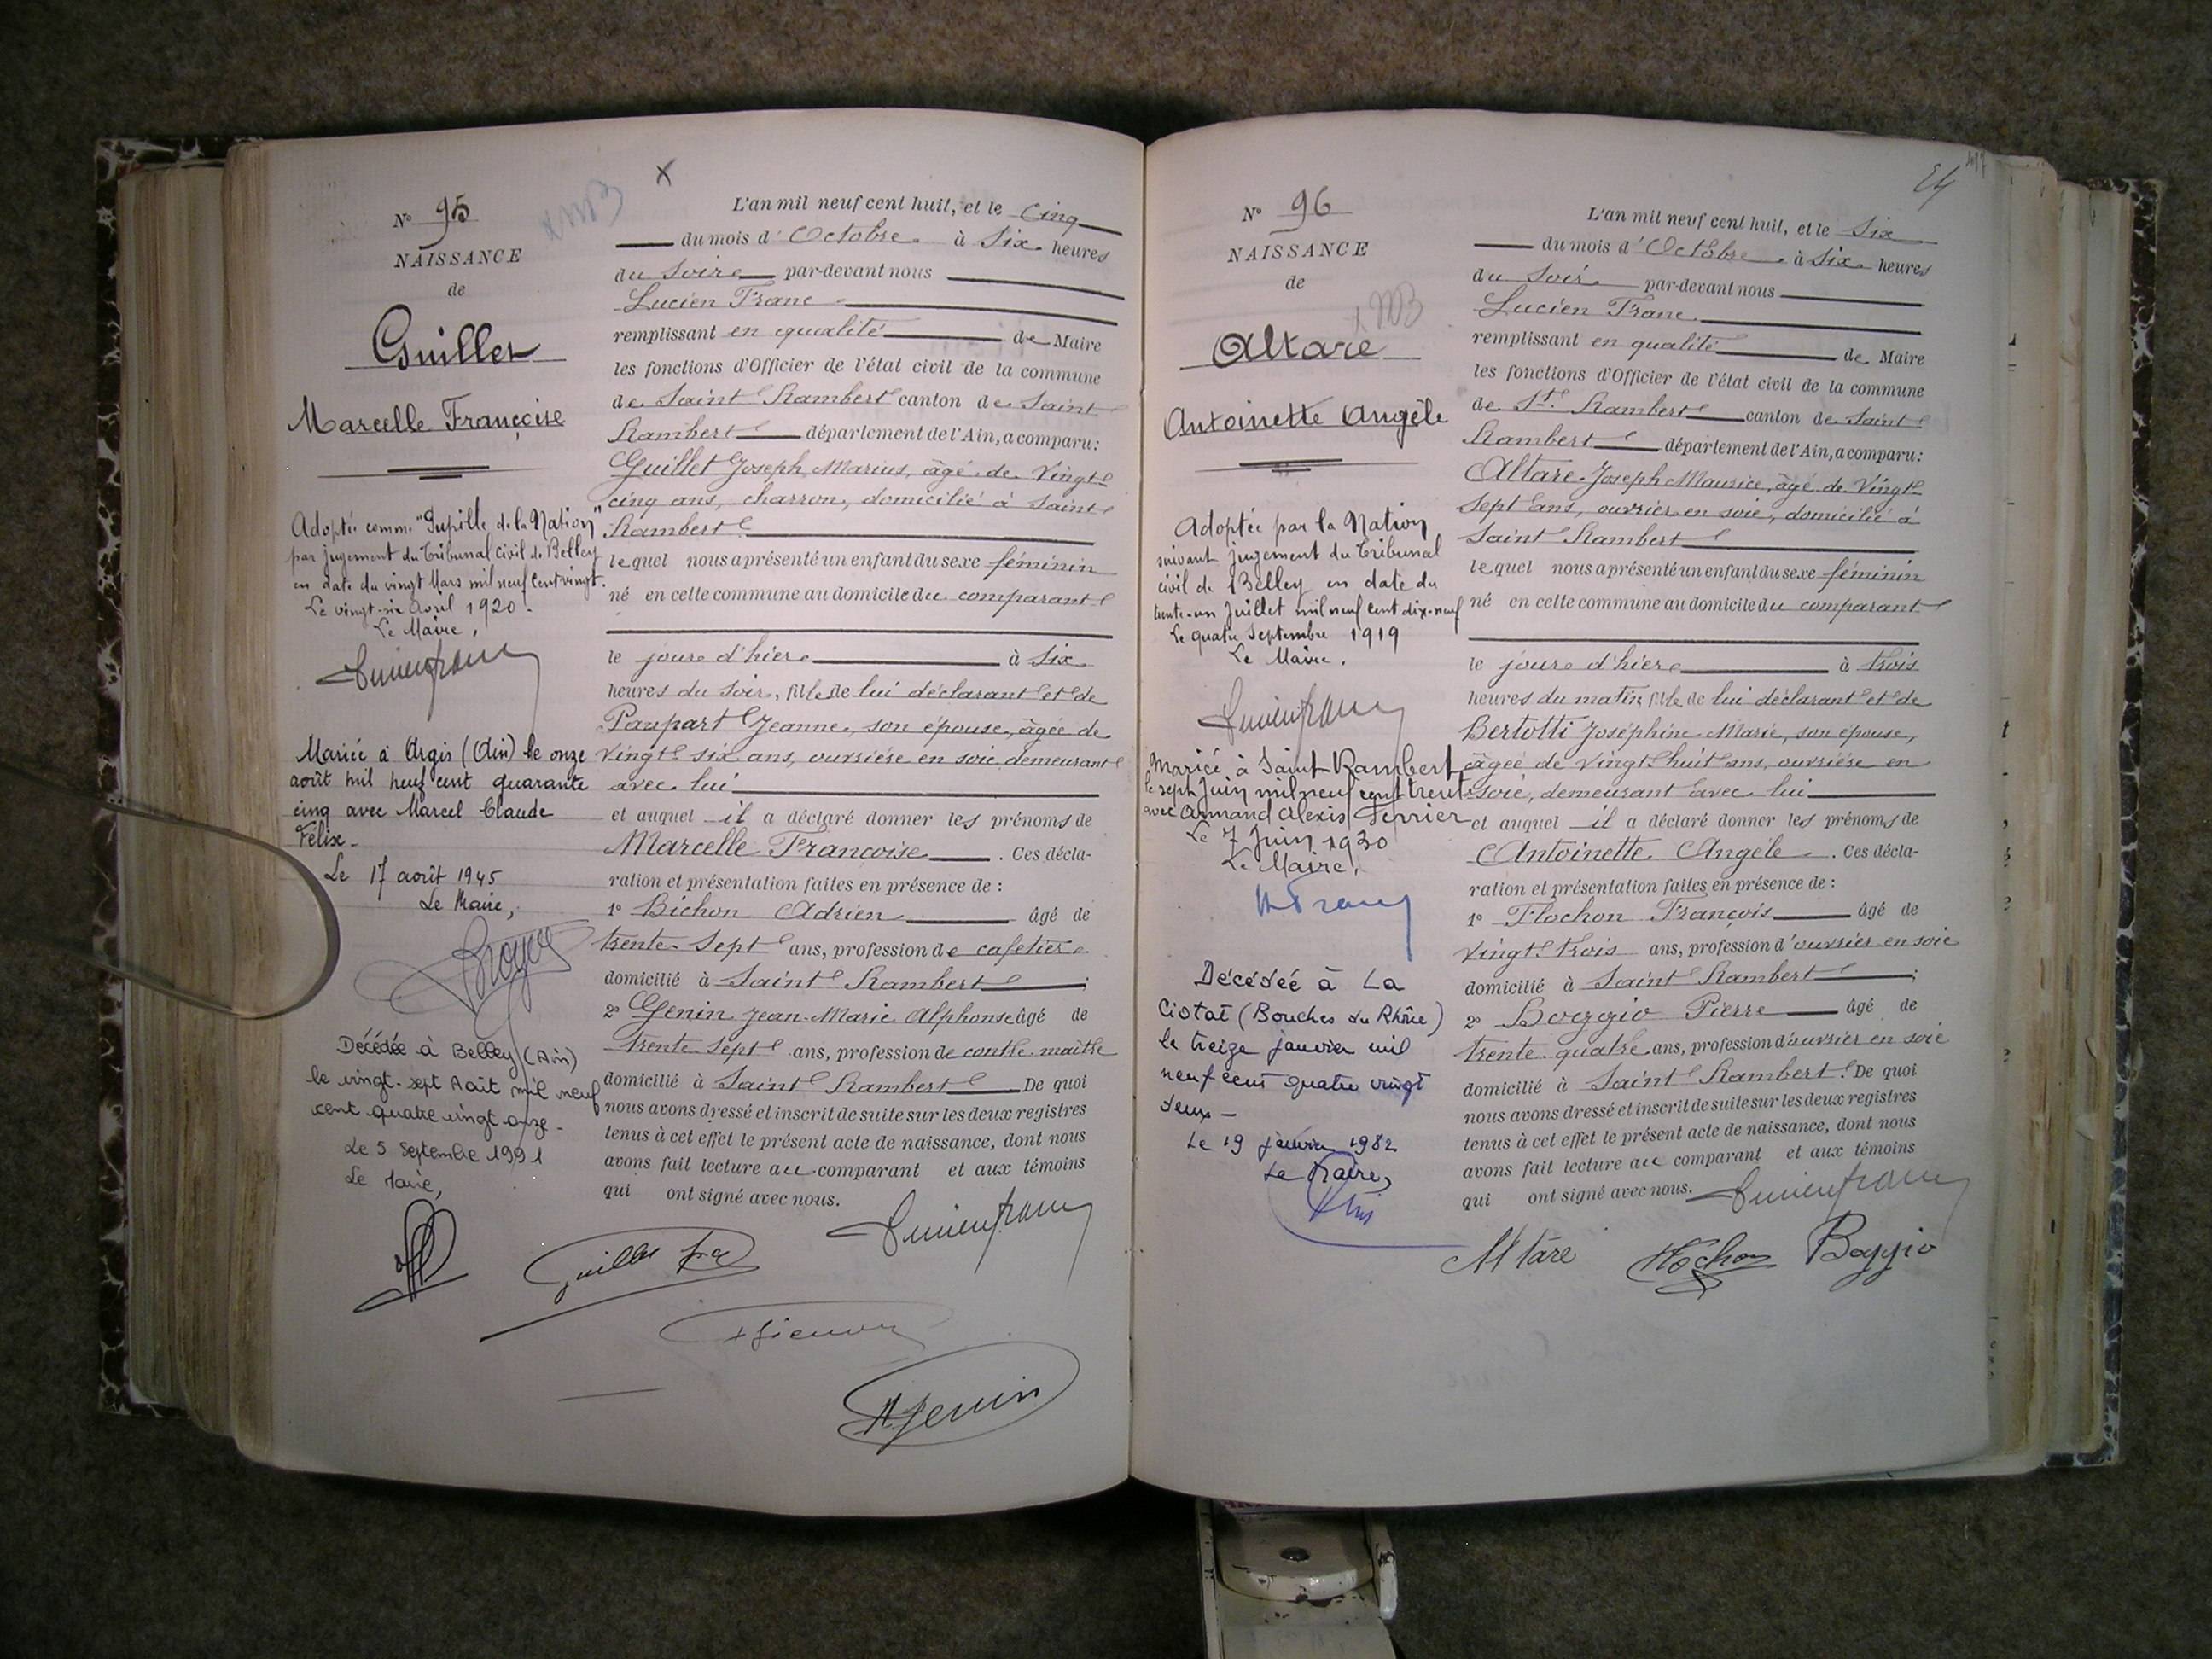 N° 95
NAISSANCE
de
Guillet
Marcelle Françoise
Adoptée comme "Pupille de la Nation"
par jugement du Tribunal Civil de Belley
en date du vingt Mars mil neuf Cent vingt.
Le vingt-six Avril 1920.
Le Maire,
Lucien Franc
Mariée à Argis (Ain) le onze
août mil neuf cent quarante
cinq avec Marcel Claude
Félix.
Le 17 août 1945
Le Maire,
Décédée à Belley (Ain)
le vingt-sept Août mil neuf
cent quatre vingt onze.
Le 5 Septembre 1991
Le Maire,
X
L'an mil neuf cent huit, et le Cinq
du mois d'Octobre à Six heures
du Soir par-devant nous
Lucien Franc
remplissant en qualité de Maire
les fonctions d'Officier de l'état civil de la commune
de Saint Rambert canton de Saint
Rambert département de l'Ain, a comparu:
Guillet Joseph Marius, âgé de Vingt
cinq ans, charron, domicilié à Saint
Rambert
lequel nous a présenté un enfant du sexe féminin
né en cette commune au domicile du comparant
le jour d'hier à Six
heures du Soir, fille de lui déclarant et de
Paupart Jeanne, son épouse, âgée de
Vingt six ans, ouvrière en soie demeurant
avec lui
et auquel il a déclaré donner les prénoms de
Marcelle Françoise . Ces décla-
ration et présentation faites en présence de :
1° Bichon Adrien âgé de
trente Sept ans, profession de cafetier
domicilié à Saint Rambert ;
2° Genin Jean-Marie Alphonse âgé de
trente Sept ans, profession de contre-maître
domicilié à Saint Rambert De quoi
nous avons dressé et inscrit de suite sur les deux registres
tenus à cet effet le présent acte de naissance, dont nous
avons fait lecture au comparant et aux témoins
qui ont signé avec nous.
Lucien Franc
Guillet
A. Genin
54
N° 96
NAISSANCE
de
Altare
Antoinette Angèle
Adoptée par la Nation
suivant jugement du Tribunal
civil de Belley en date du
trente-un Juillet mil neuf Cent dix-neuf
Le quatre Septembre 1919
Le Maire.
Lucien Franc
Mariée à Saint-Rambert
le sept Juin mil neuf cent trente
avec Armand Alexis Ferrier
Le 7 Juin 1930
Le Maire,
Décédée à La
Ciotat (Bouches du Rhône)
le treize janvier mil
neuf cent quatre vingt
deux -
Le 19 janvier 1982
Le Maire,
L'an mil neuf cent huit, et le Six
du mois d'Octobre à Six heures
du Soir par-devant nous
Lucien Franc
remplissant en qualité de Maire
les fonctions d'Officier de l'état civil de la commune
de St. Rambert canton de Saint
Rambert département de l'Ain, a comparu:
Altare Joseph Maurice, âgé de Vingt
Sept ans, ouvrier en soie, domicilié à
Saint Rambert
lequel nous a présenté un enfant du sexe féminin
né en cette commune au domicile du comparant
le jour d'hier à trois
heures du matin, fille de lui déclarant et de
Bertotti Joséphine Marie, son épouse,
âgée de Vingt huit ans, ouvrière en
soie, demeurant avec lui
et auquel il a déclaré donner les prénoms de
Antoinette Angèle . Ces décla-
ration et présentation faites en présence de :
1° Flochon François âgé de
vingt trois ans, profession d'ouvrier en soie
domicilié à Saint Rambert ;
2° Boggio Pierre âgé de
trente quatre ans, profession d'ouvrier en soie
domicilié à Saint Rambert. De quoi
nous avons dressé et inscrit de suite sur les deux registres
tenus à cet effet le présent acte de naissance, dont nous
avons fait lecture au comparant et aux témoins
qui ont signé avec nous. Lucien Franc
Altare Flochon Boggio